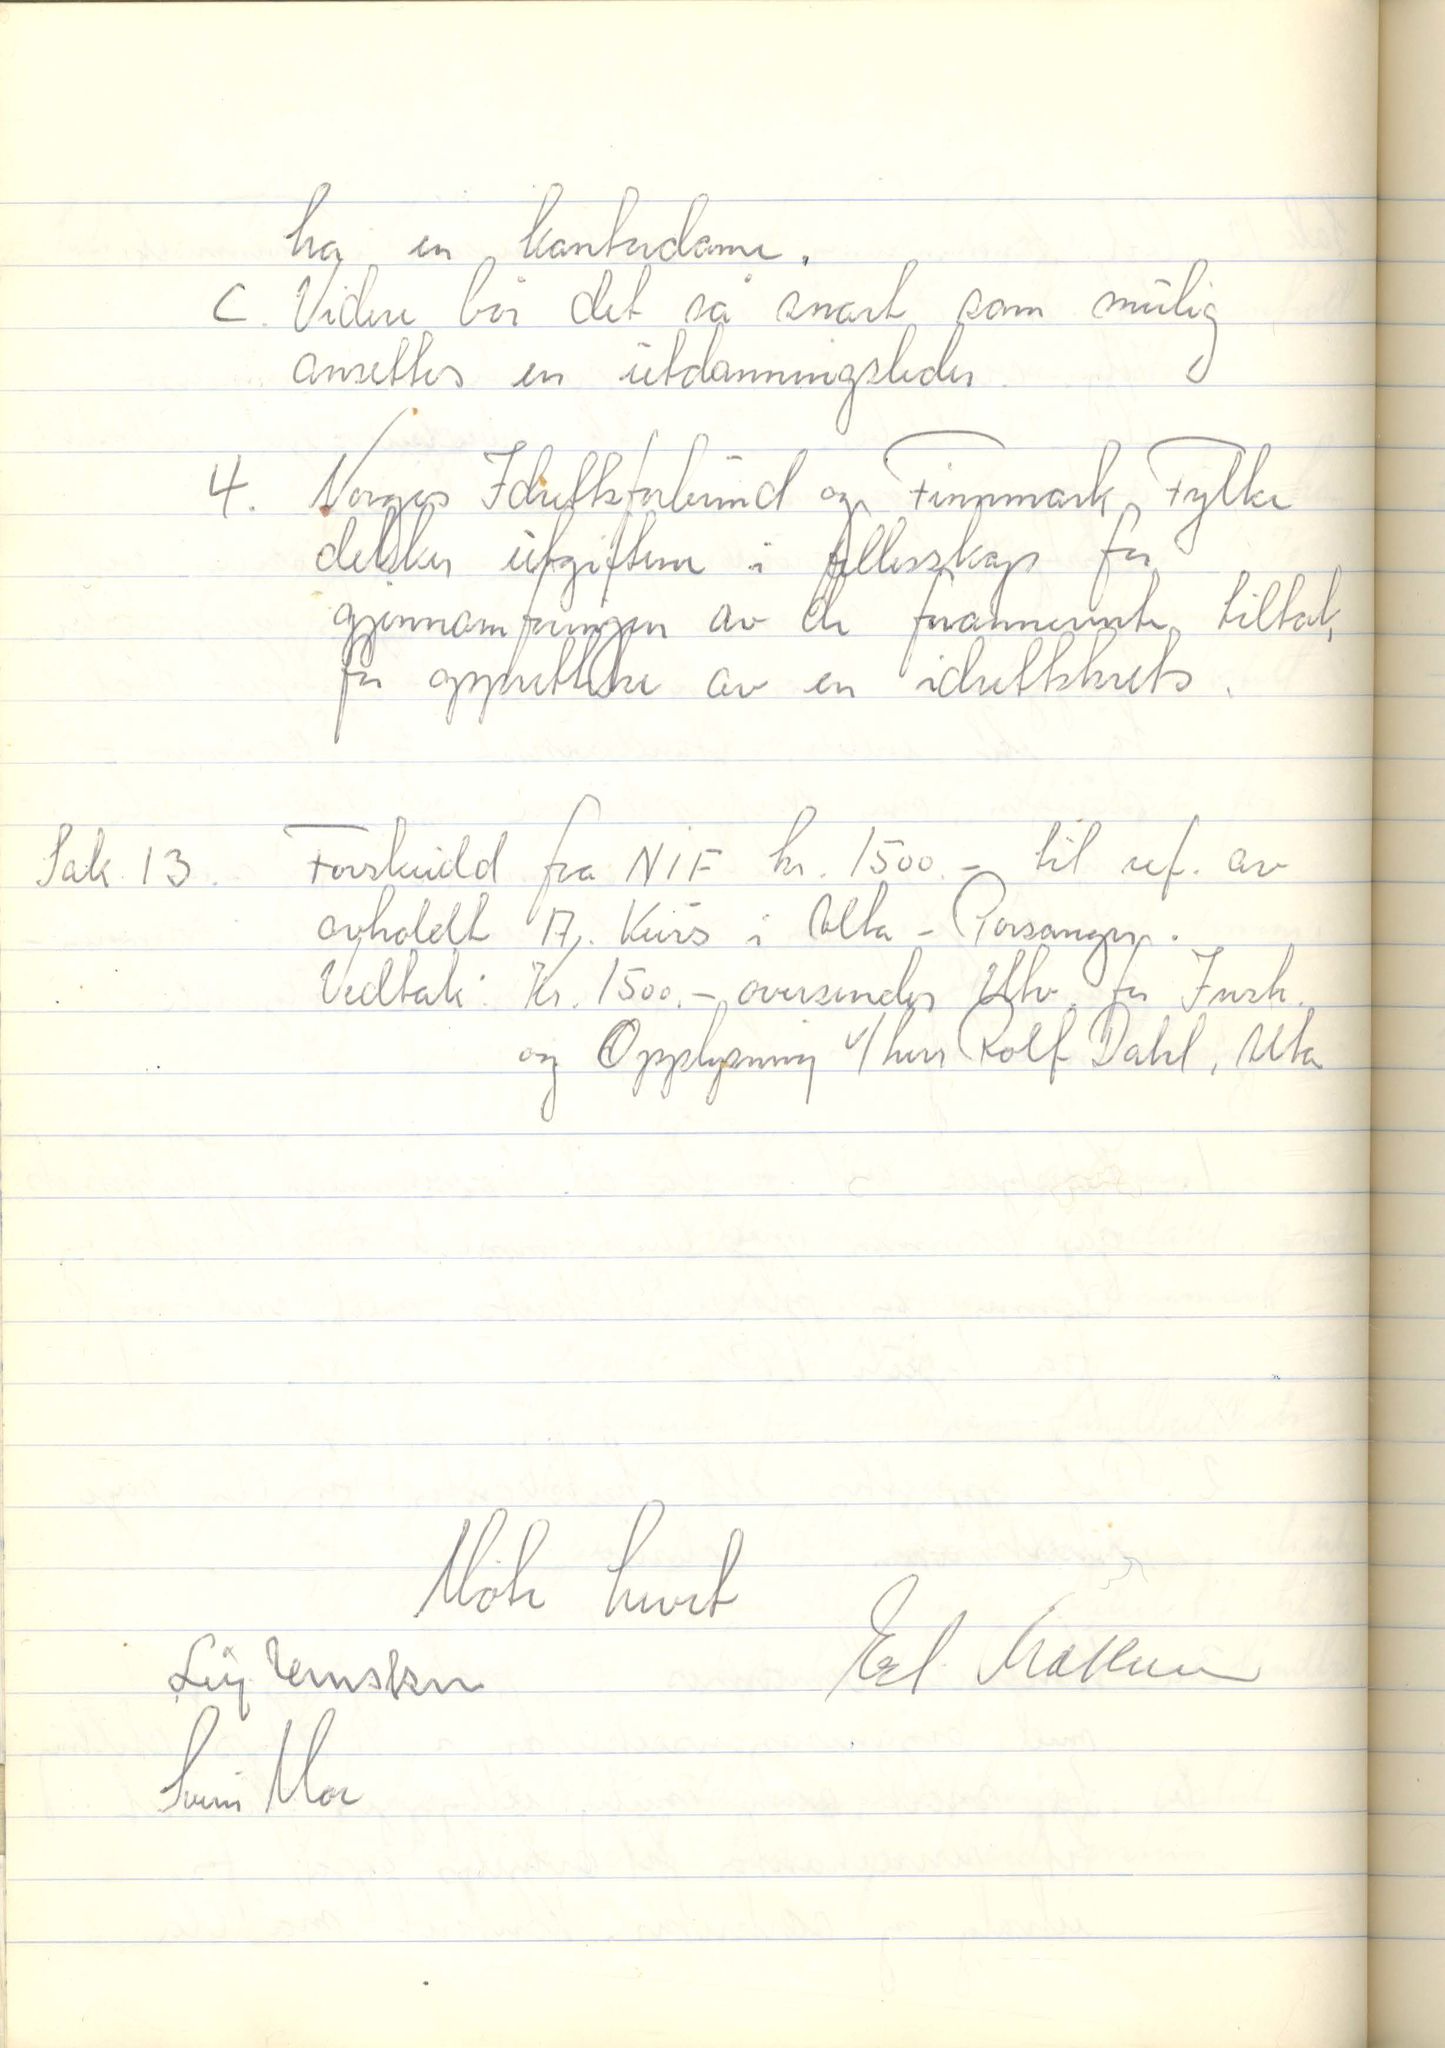 ha en kontordame.
C. Videre bør det så snart som mulig
ansettes en utdanningsleder
4. Norges Idrettsforbund og Finnmark Fylke
dekker utgiftene i fellesskap for
gjennomføringen av de forannevnte tiltak,
for opprettelse av en idrettskrets.
Sak 13. Forskudd fra NIF kr. 1500.- til ref. av
avholdt Kurs i Alta - Porsanger.
Vedtak: Kr. 1500.- oversendes Utv. for Instr.
og Opplysning v/herr Rolf Dahl, Alta
Møte hevet
Svein Moe